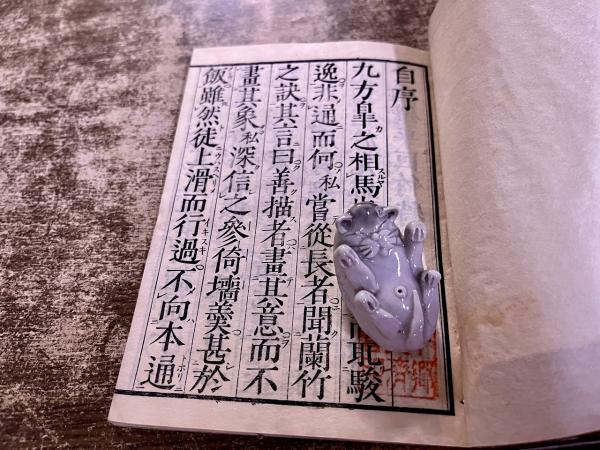 自序
九方皐之相馬 耴駿
逸非通而何私嘗從長者聞蘭竹
之訣其言曰善描者畫其意而不
畫其象私深信之參倚墻羹甚於
飯雖然徒上滑而行過不向本通